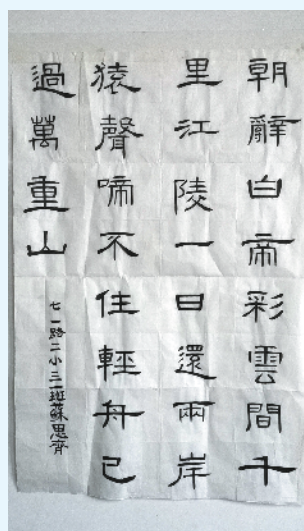 朝辭白帝彩雲間千
里江陵一日還兩岸
猿聲啼不住輕舟已
過萬重山
七一路二小三一班蘇思齊